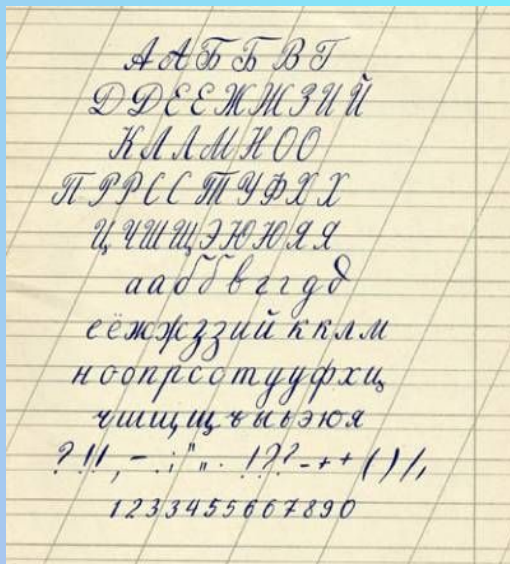 ААББВГ
ДДЕЕЖЖЗИЙ
КЛЛМНОО
ПРРССТУФХХ
ЦЧШЩЭЮЮЯЯ
ааббвггдд
еёжжззий кклм
ноопрсстуу фхц
чшищщъыьэюя
?!!,-.:;"„.!??-++()%,
1233455667890